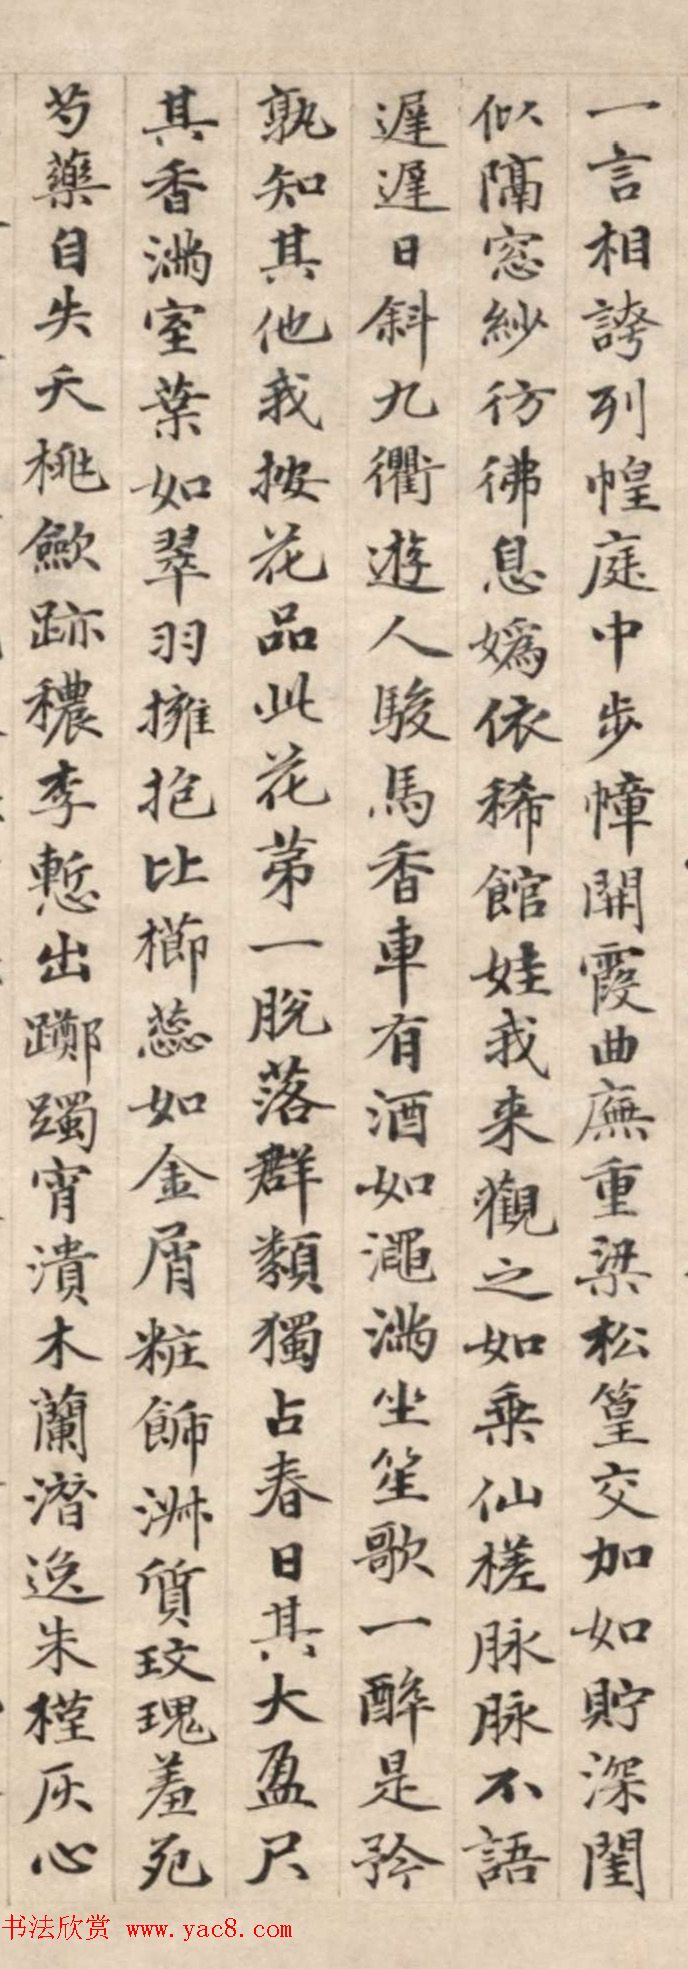 一言相誇列幄庭中步幛開霞曲廡重梁松篁交加如貯深閨
似隔窓紗彷彿息媯依稀館娃我来觀之如乗仙槎脉脉不語
遲遲日斜九衢遊人駿馬香車有酒如澠満坐笙歌一醉是矜
孰知其他我按花品此花苐一脫落群類獨占春日其大盈尺
其香満室葉如翠羽擁抱比櫛蕊如金屑粧飾淋質玫瑰羞死
芍藥自失夭桃歛跡穠李慙出躑躅宵潰木蘭潛逸朱槿灰心
书法欣赏 www.yac8.com